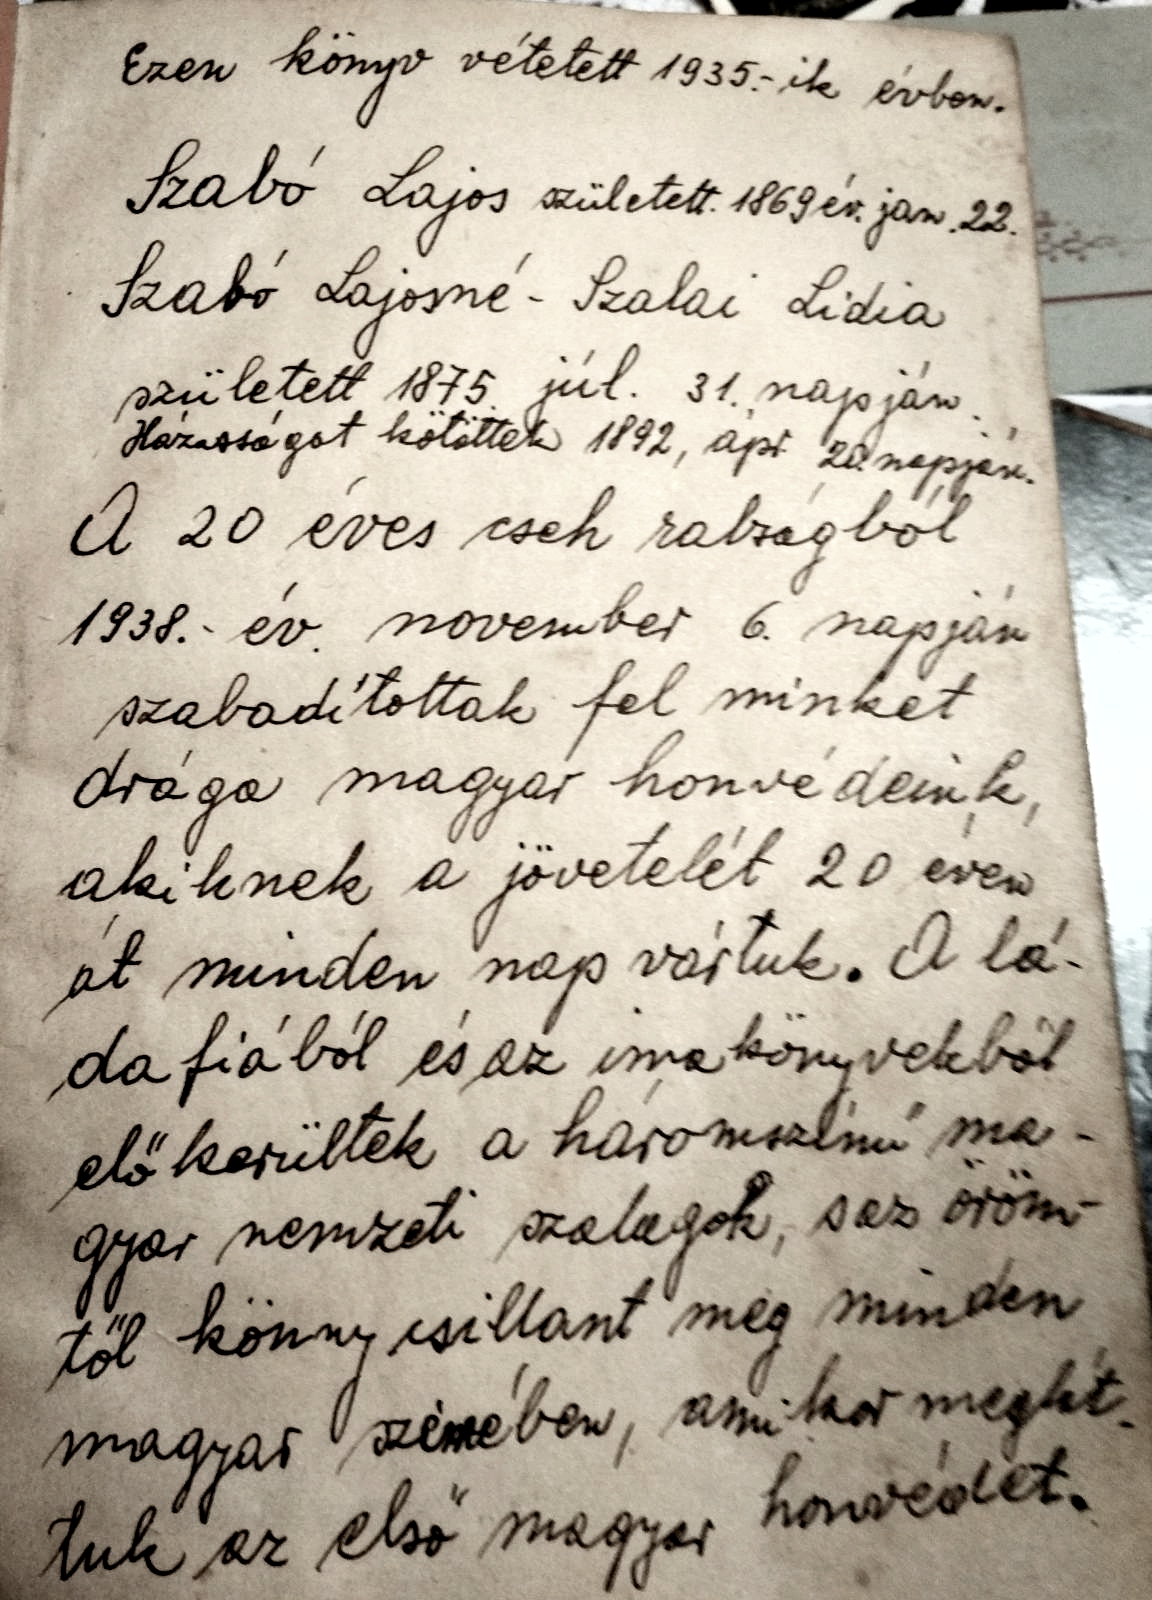 Ezen könyv vétetett 1935.-ik évben.
Szabó Lajos született. 1869 év. jan. 22.
Szabó Lajosné - Szalai Lidia
született 1875. júl. 31. napján.
Házasságot kötöttek 1892, ápr 20. napján.
A 20 éves cseh rabságból
1938.- év. november 6. napján
szabadítottak fel minket
drága magyar honvédeink,
akiknek a jövetelét 20 éven
át minden nap vártuk. A lá-
dafiából és az imakönyvekből
előkerültek a háromszínű ma-
gyar nemzeti szalagok, s az öröm-
től könny csillant meg minden
magyar szemében, amikor meglát-
tuk az első magyar honvédet.